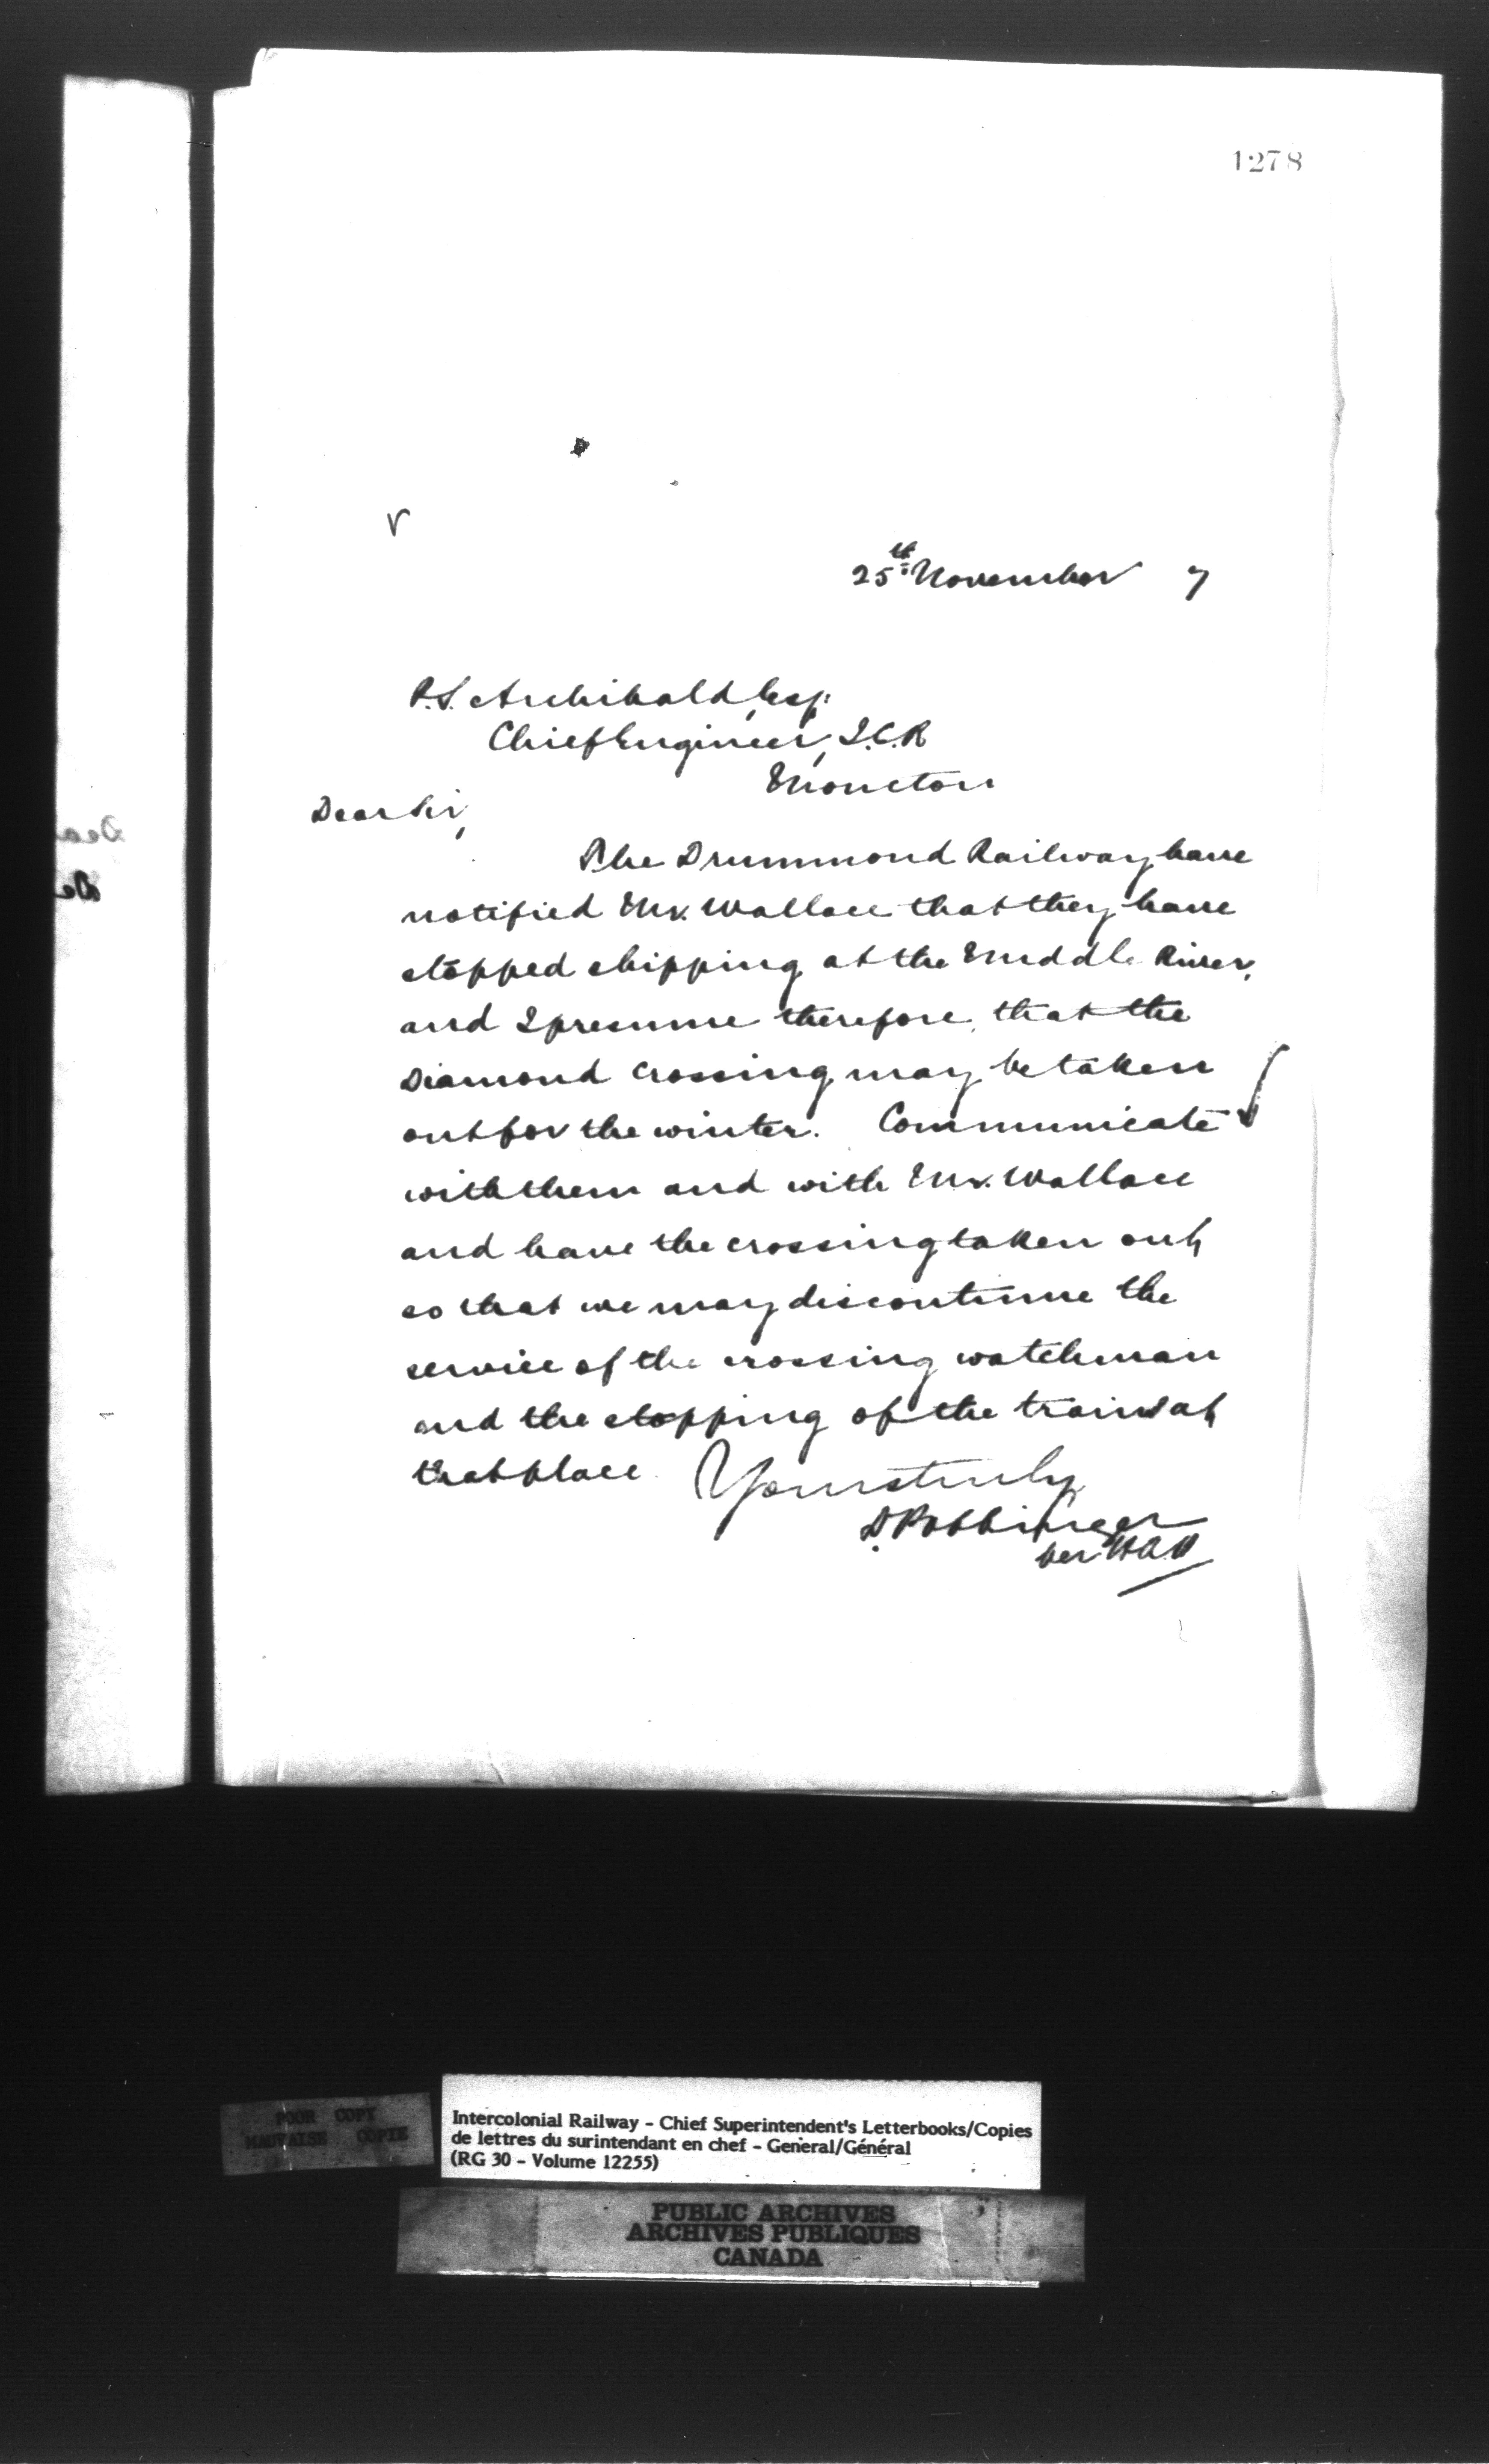 1278
25th November 7
P.S. Archibald, Esq.
Chief Engineer, I.C.R
Moncton
Dear Sir,
The Drummond Railway have
notified Mr. Wallace that they have
stopped shipping at the Middle River,
and I presume therefore, that the
Diamond crossing may be taken
out for the winter. Communicate
with them and with Mr. Wallace
and have the crossing taken out,
so that we may discontinue the
service of the crossing watchman
and the stopping of the trains at
that place. Yours truly
D. Pottinger
per
Dea
De
POOR COPY
MAUVAISE COPIE
Intercolonial Railway - Chief Superintendent's Letterbooks/Copies
de lettres du surintendant en chef - General/Général
(RG 30 - Volume 12255)
PUBLIC ARCHIVES
ARCHIVES PUBLIQUES
CANADA